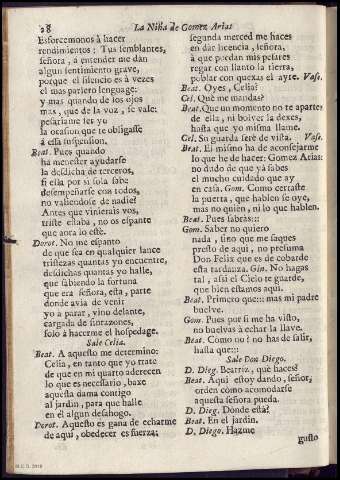 28 La Niña de Gomez Arias
Esforcemonos à hacer
rendimientos: Tus semblantes,
señora, à entender me dan
algun sentimiento grave,
porque el silencio es à veces
el mas parlero lenguage:
y mas quando de los ojos
mas, que de la voz, se vale:
pesariame ser yo
la ocasion que te obligasse
à essa suspension.
Beat. Pues quando
ha menester ayudarse
la desdicha de terceros,
si ella por si sola sabe
desempeñarse con todos,
no valiendose de nadie?
Antes que vinierais vos,
triste estaba, no os espante
que aora lo estè.
Dorot. No me espanto
de que sea en qualquier lance
tristezas quantas yo encuentre,
desdichas quantas yo halle,
que sabiendo la fortuna
que era señora, esta, parte
donde avia de venir
yo à parar, vino delante,
cargada de sinrazones,
solo à hacerme el hospedage.
Sale Celia.
Beat. A aquesto me determino:
Celia, en tanto que yo trate
de que en mi quarto aderecen
lo que es necessario, baxe
aquessa dama contigo
al jardin, para que halle
en èl algun desahogo.
Dorot. Aquesto es gana de echarme
de aqui, obedecer es fuerza;
segunda merced me haces
en dar licencia, señora,
à que puedan mis pesares
regar con llanto la tierra,
poblar con quexas el ayre. Vase.
Beat. Oyes, Celia?
Cel. Què me mandas?
Beat. Que un momento no te apartes
de ella, ni bolver la dexes,
hasta que yo misma llame.
Cel. Su guarda serè de vista. Vase.
Beat. El mismo ha de aconsejarme
lo que he de hacer: Gomez Arias:
no dudo de que yà sabes
el mucho cuidado que ay
en casa. Gom. Como cerraste
la puerta, que hablen se oye,
mas no quien, ni lo que hablen.
Beat. Pues sabràs:::
Gom. Saber no quiero
nada, sino que me saques
presto de aqui, no presuma
Don Felix que es de cobarde
esta tardanza. Gin. No hagas
tal, assi el Cielo te guarde,
que bien estamos aqui.
Beat. Primero que::: mas mi padre
buelve.
Gom. Pues por si me ha visto,
no buelvas à echar la llave.
Beat. Como no? no has de salir,
hasta que:::
Sale Don Diego.
D. Dieg. Beatriz, què haces?
Beat. Aqui estoy dando, señor,
orden còmo acomodarse
aquessa señora pueda.
D. Dieg. Dònde està?
Beat. En el jardin.
D. Dieg. Hazme
gusto